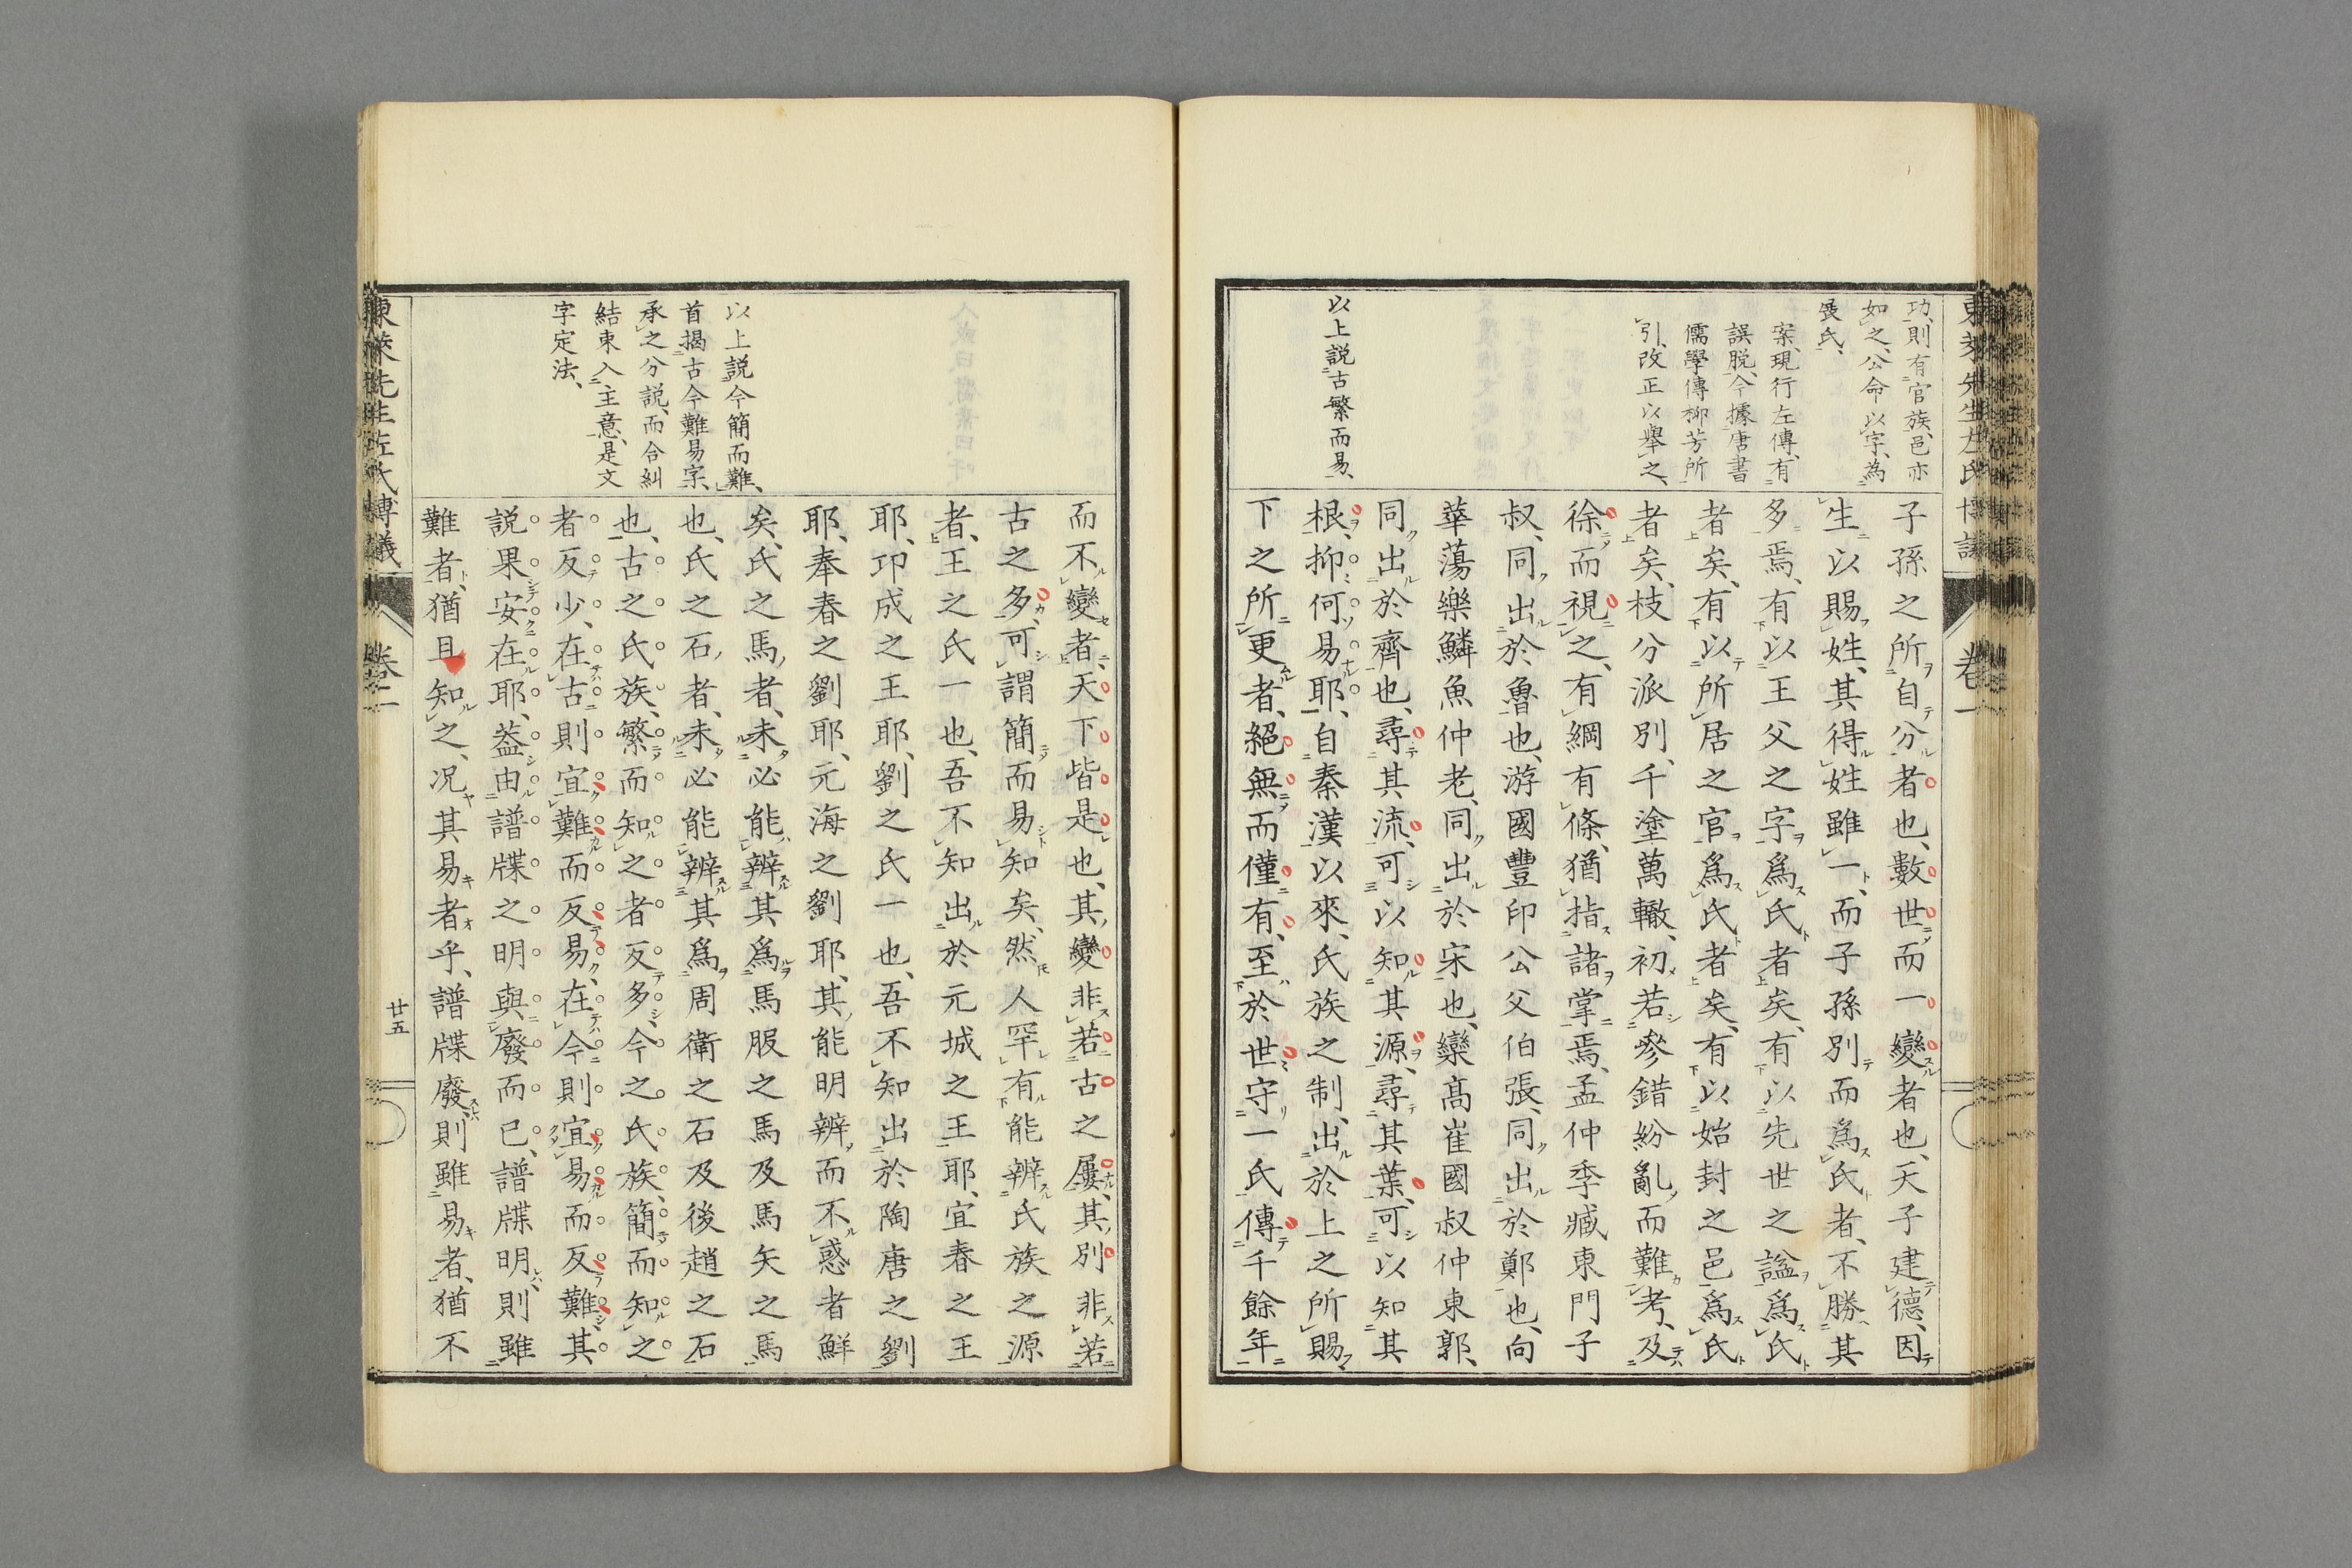 功、則有官族、邑亦
如之、公命以字、為
展氏、
案、現行左傳、有
誤脱、今據唐書
儒學傳柳芳所
引、改正以舉之、
以上説古繁而易、
子孫之所自分者也、數世而一變者也、天子建德、因
生以賜姓、其得姓雖一、而子孫別而爲氏者、不勝其
多焉、有以王父之字爲氏者矣、有以先世之謚爲氏
者矣、有以所居之官爲氏者矣、有以始封之邑爲氏
者矣、枝分派別、千塗萬轍、初若參錯紛亂而難考、及
徐而視之、有綱有條、猶指諸掌焉、孟仲季臧東門子
叔、同出於魯也、游國豐印公父伯張、同出於鄭也、向
華蕩樂鱗魚仲老、同出於宋也、欒高崔國叔仲東郭、
同出於齊也、尋其流、可以知其源、尋其葉、可以知其
根、抑何易耶、自秦漢以來、氏族之制、出於上之所賜、
下之所更者、絕無而僅有、至於世守一氏、傳千餘年
以上説今簡而難、
首揭古今難易字、
承之分説、而合糾
結束入主意、是文
字定法、
而不變者、天下皆是也、其變非若古之屢、其別非若
古之多、可謂簡而易知矣、然人罕有能辨氏族之源
者、王之氏一也、吾不知出於元城之王耶、宜春之王
耶、印成之王耶、劉之氏一也、吾不知出於陶唐之劉
耶、奉春之劉耶、元海之劉耶、其能明辨而不惑者鮮
矣、氏之馬者、未必能辨其爲馬服之馬及馬矢之馬
也、氏之石者、未必能辨其爲周衛之石及後趙之石
也、古之氏族、繁而知之者反多、今之氏族、簡而知之
者反少、在古則宜難而反易、在今則宜易而反難、其
説果安在耶、蓋由譜牒之明與廢而已、譜牒明、則雖
難者、猶且知之、況其易者乎、譜牒廢、則雖易者、猶不
東萊先生左氏博議
卷二
廿五